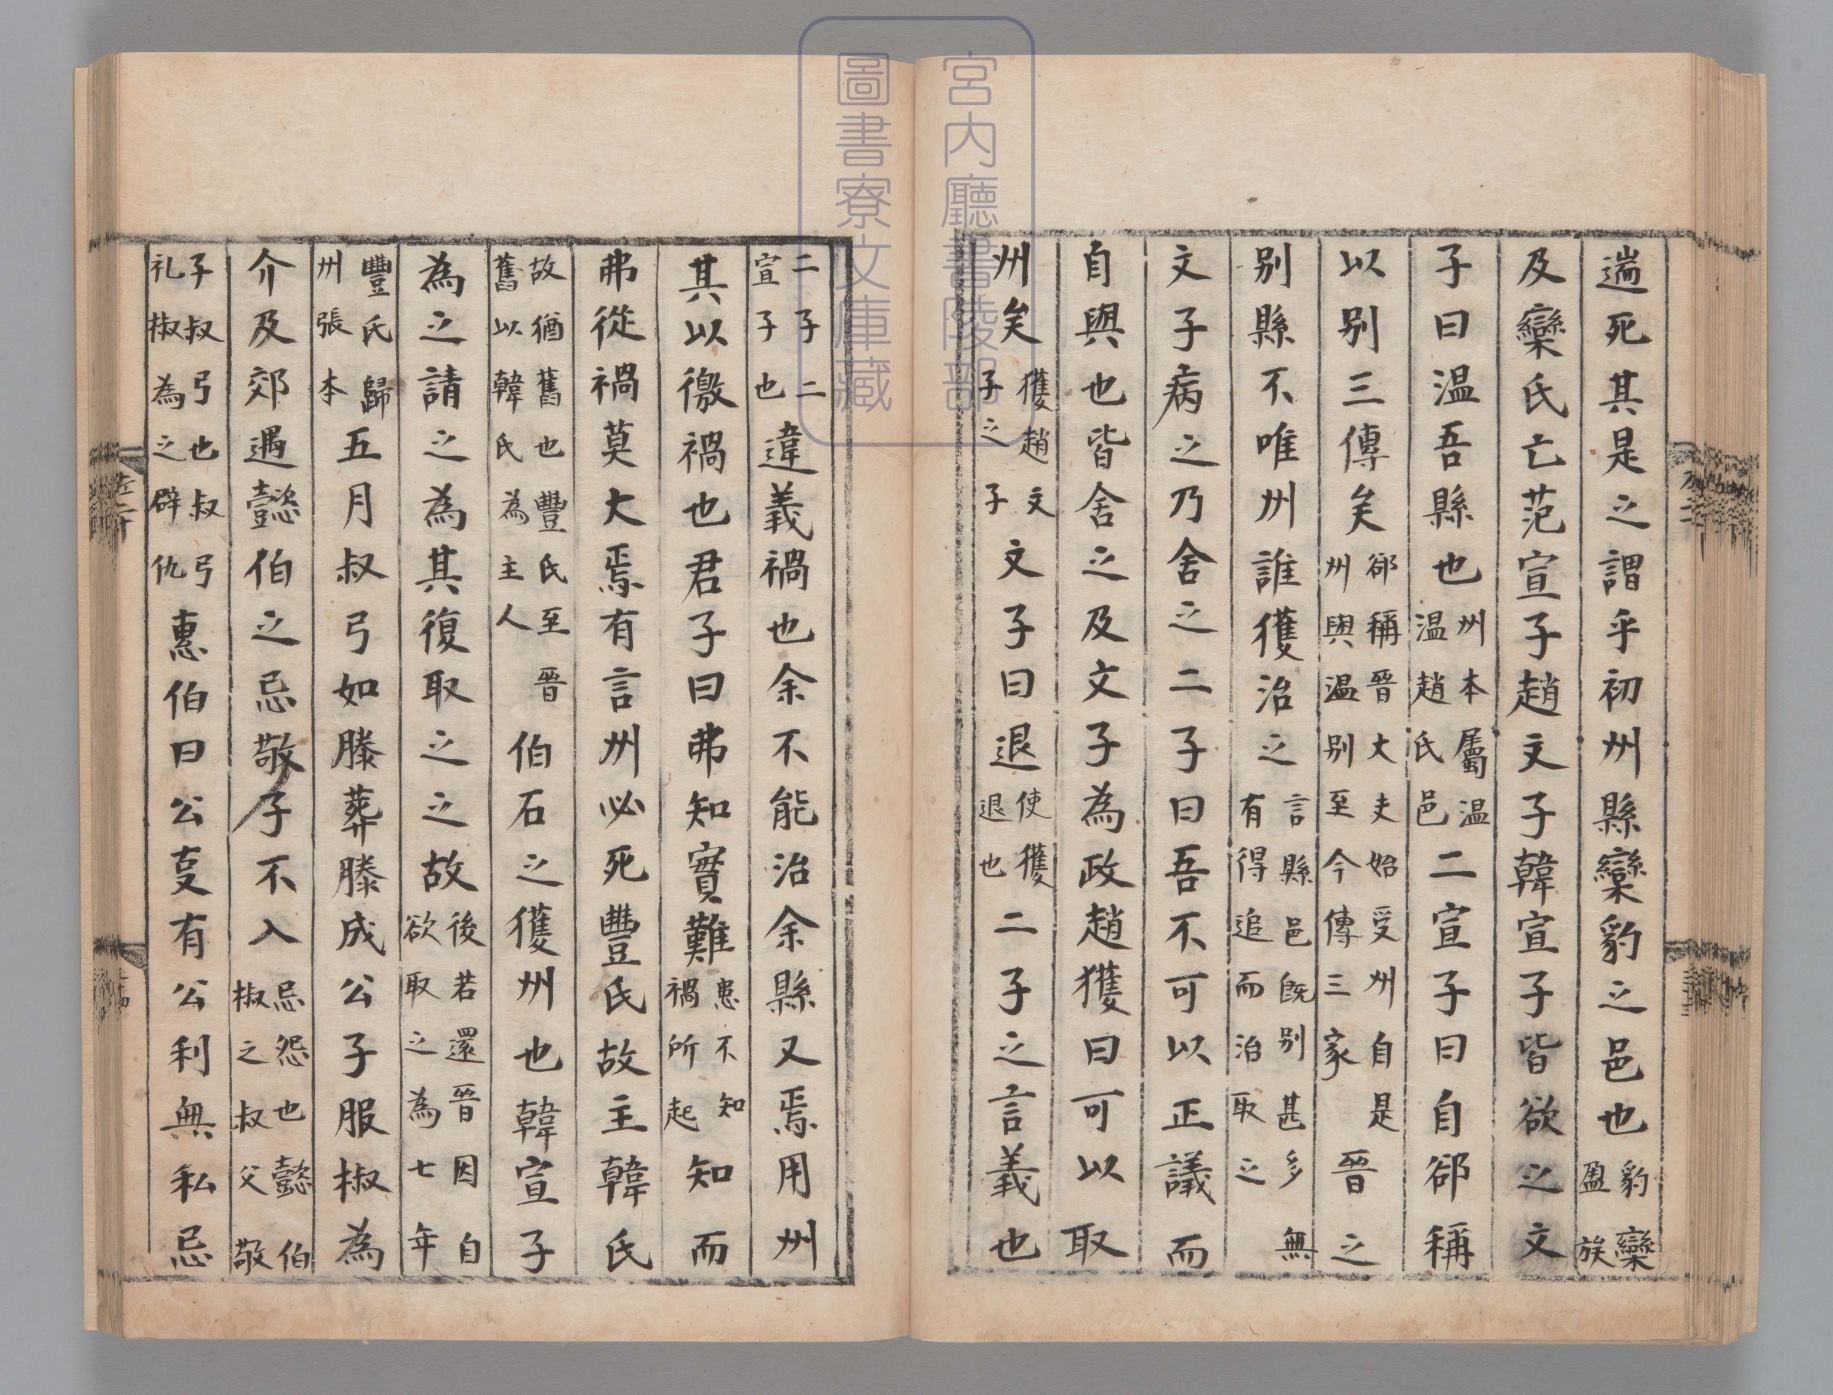 遄死其是之謂乎初州縣欒豹之邑也豹欒盈族
及欒氏亡范宣子趙文子韓宣子皆欲之文
子曰温吾縣也州本屬温温趙氏邑二宣子曰自郤稱
以别三傳矣郤稱晉大夫始受州自是州與温别至今傳三家晉之
别縣不唯州誰獲治之言縣邑既别甚多無有得追而治取之
文子病之乃舍之二子曰吾不可以正議而
自與也皆舍之及文子為政趙獲曰可以取
州矣獲趙文子之子文子曰退使獲退也二子之言義也
二子二宣子也違義禍也余不能治余縣又焉用州
其以徼禍也君子曰弗知實難患不知禍所起知而
弗從禍莫大焉有言州必死豐氏故主韓氏
故猶舊也豐氏至晉舊以韓氏為主人伯石之獲州也韓宣子
為之請之為其復取之之故後若還晉因自欲取之為七年
豐氏歸州張本五月叔弓如滕葬滕成公子服椒為
介及郊遇懿伯之忌敬子不入忌怨也懿伯椒之叔父敬
子叔弓也叔弓礼椒為之辟仇惠伯曰公事有公利無私忌
宮内廳書陵部
圖書寮文庫藏